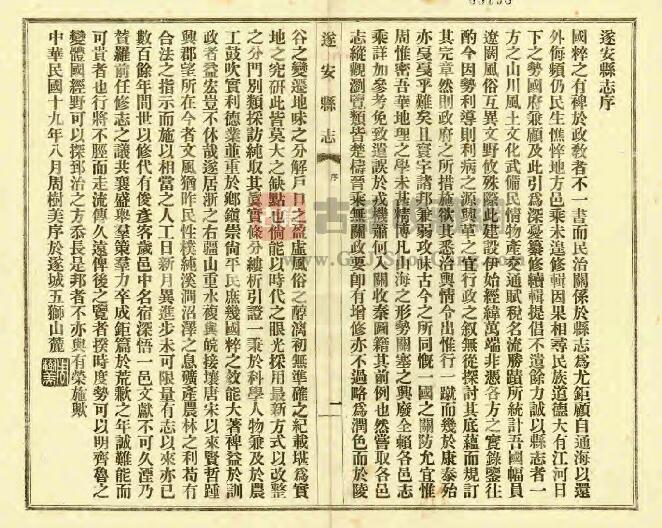 遂安縣志序
國粹之有裨於政敎者不一書而民治關係於縣志爲尤鉅顧自通海以還
外侮頻仍民生憔悴地方邑乘未遑修輯因果相尋民族道德大有江河日
下之勢國府兼顧及此引爲深憂纂修續輯提倡不遺餘力誠以縣志者一
方之山川風土文化武備民情物產交通賦稅名流勝蹟所統計吾國幅員
遼闊風俗互異文野攸殊際此建設伊始經緯萬端非憑各方之實錄鑒往
酌今因勢利導則利病之源興革之宜行政之叙無從探其底蘊而規訂
其完章然則政府之所措施欲其悉洽輿情令出惟行一蹴而幾於康泰殆
亦戞戞乎難矣且寰宇諸邦兼弱攻昧古今之所同慨一國之關防尤宜惟
周惟密吾華地理之學未甚精博凡山海之形勢關塞之興廢全賴各邑志
乘詳加參考免致遺誤於戎機蕭何入關收秦圖籍其前例也然嘗取各邑
志縱觀瀏覽類皆楚檮晉乘無關政要卽有增修亦不過略爲潤色而於陵
遂安縣志
序
一
谷之變遷地味之分解戶口之盈虛風俗之醇漓初無準確之紀載堪爲實
地之究研此皆莫大之缺點也倘能以時代之眼光採用最新方式以改整
之分門別類採訪純取其眞實條分縷析引證一秉於科學人物兼及於農
工鼓吹實利德業並重於鄉鎭崇尙平民庶幾國粹之敎能大著裨益於訓
政者益宏豈不休哉遂居浙之右疆山重水複與皖接壤唐宋以來賢哲踵
興郡望所在今者文風猶昨民性樸純溪澗沼澤之息礦產農林之利苟有
合法之指示而施以相當之人工日新月異進步未可限量有志以來亦已
數百餘年間世以修代有俊彥客歲邑中名宿深悟一邑文獻不可久湮乃
贊羅前任修志之議共襄盛舉羣策羣力卒成鉅篇於荒歉之年誠難能而
可貴者也行將不脛而走流傳久遠俾後之覽者揆時度勢可以明齊魯之
變體國經野可以探郅治之方忝長是邦者不亦與有榮施歟
中華民國十九年八月周樹美序於遂城五獅山麓